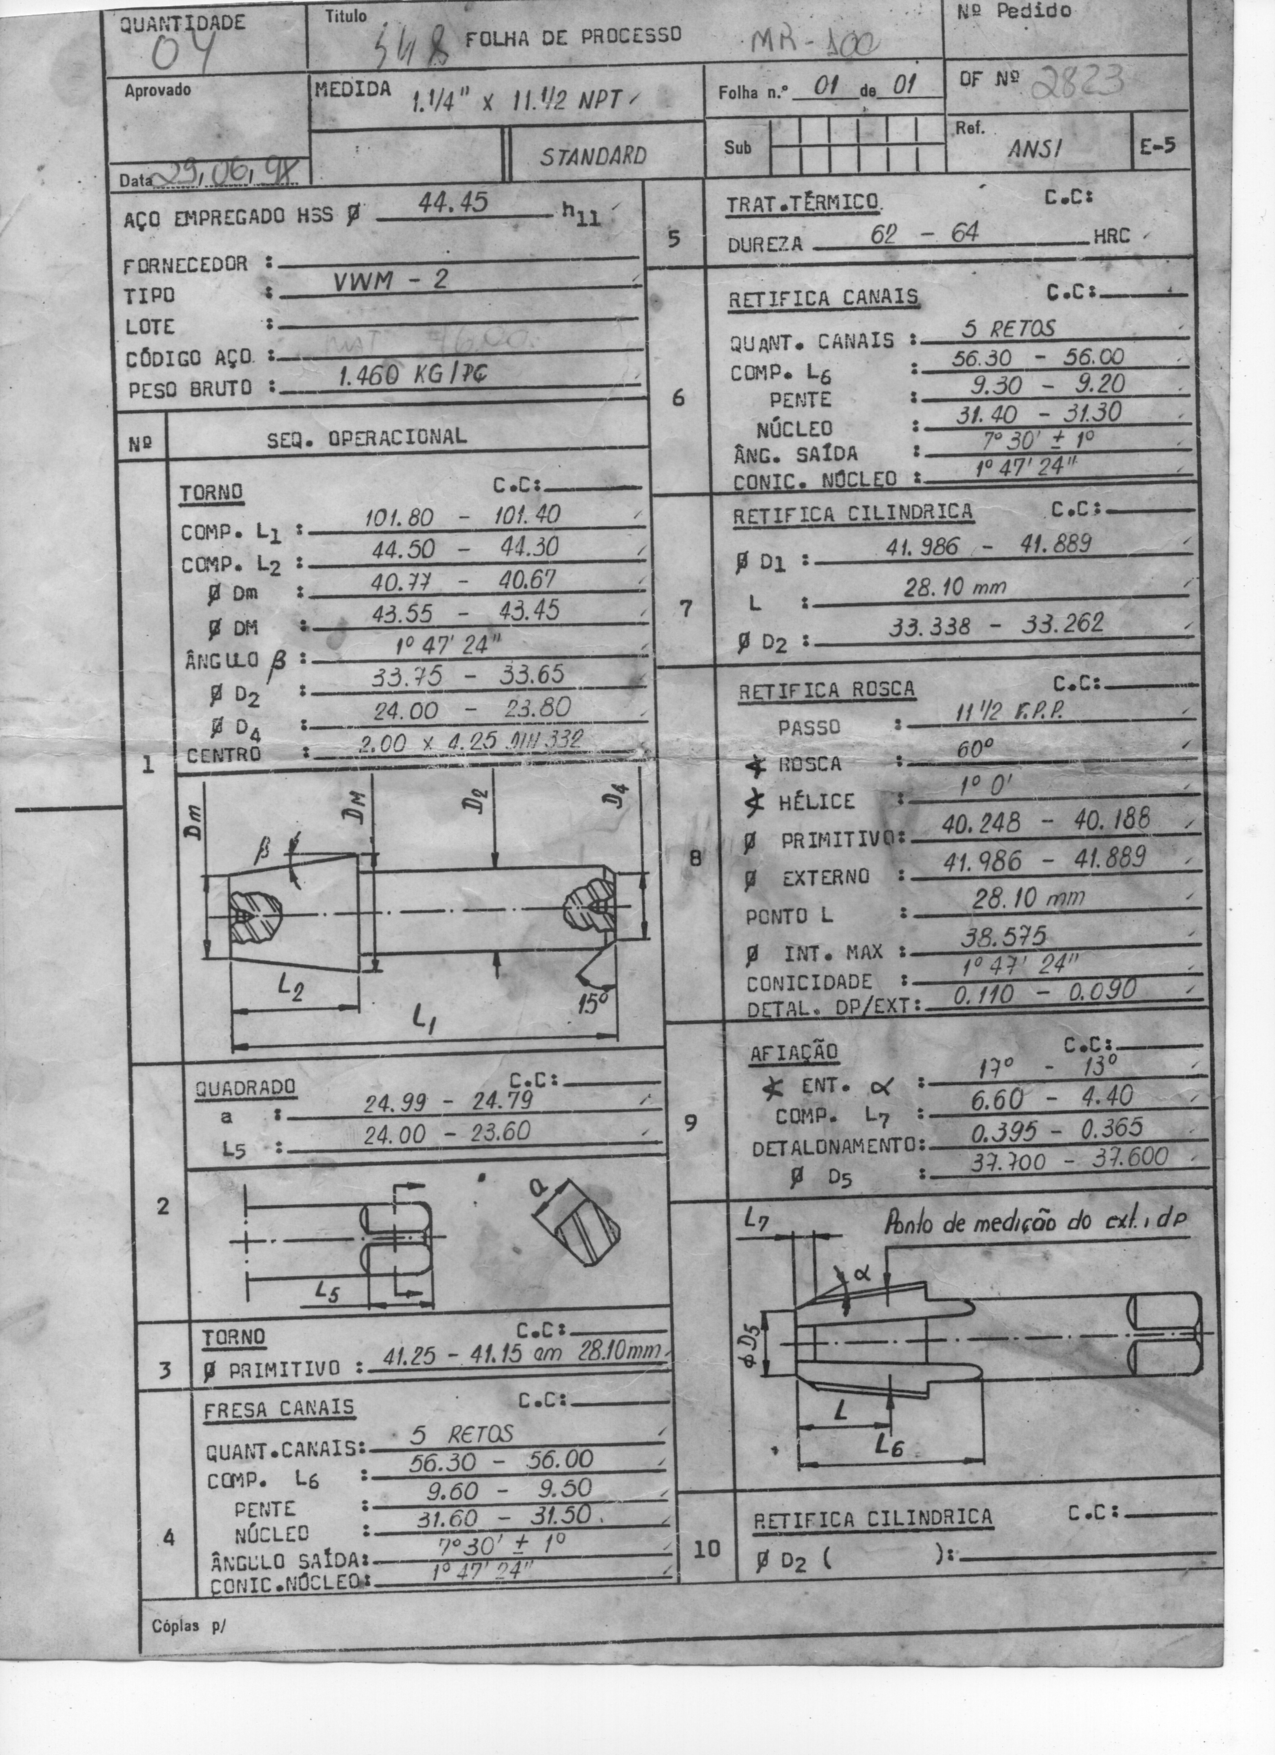 QUANTIDADE
04
Titulo
548 FOLHA DE PROCESSO MR-100
Nº Pedido
Aprovado
MEDIDA 1.1/4" x 11.1/2 NPT
Folha n.º 01 de 01
OF Nº 2823
STANDARD
Sub
Ref. ANSI
E-5
Data 29,06,98
AÇO EMPREGADO HSS Ø 44.45 h11
FORNECEDOR :
TIPO : VWM - 2
LOTE :
CÓDIGO AÇO :
PESO BRUTO : 1.460 KG/PÇ
Nº SEQ. OPERACIONAL
1
TORNO C.C:
COMP. L1 : 101.80 - 101.40
COMP. L2 : 44.50 - 44.30
Ø Dm : 40.77 - 40.67
Ø DM : 43.55 - 43.45
ÂNGULO β : 1º 47' 24"
Ø D2 : 33.75 - 33.65
Ø D4 : 24.00 - 23.80
CENTRO : 2.00 x 4.25 DIN 332
Dm
β
DM
D2
D4
L2
L1
15º
2
QUADRADO C.C:
a : 24.99 - 24.79
L5 : 24.00 - 23.60
a
L5
3
TORNO C.C:
Ø PRIMITIVO : 41.25 - 41.15 am 28.10mm
4
FRESA CANAIS C.C:
QUANT.CANAIS: 5 RETOS
COMP. L6 : 56.30 - 56.00
PENTE : 9.60 - 9.50
NÚCLEO : 31.60 - 31.50
ÂNGULO SAÍDA: 7º30' ± 1º
CONIC.NÚCLEO: 1º 47' 24"
5
TRAT.TÉRMICO C.C:
DUREZA 62 - 64 HRC
6
RETIFICA CANAIS C.C:
QUANT. CANAIS : 5 RETOS
COMP. L6 : 56.30 - 56.00
PENTE : 9.30 - 9.20
NÚCLEO : 31.40 - 31.30
ÂNG. SAÍDA : 7º 30' ± 1º
CONIC. NÚCLEO : 1º 47' 24"
7
RETIFICA CILINDRICA C.C:
Ø D1 : 41.986 - 41.889
L : 28.10 mm
Ø D2 : 33.338 - 33.262
8
RETIFICA ROSCA C.C:
PASSO : 11 1/2 F.P.P.
∢ ROSCA : 60º
∢ HÉLICE : 1º 0'
Ø PRIMITIVO: 40.248 - 40.188
Ø EXTERNO : 41.986 - 41.889
PONTO L : 28.10 mm
Ø INT. MAX : 38.575
CONICIDADE : 1º 47' 24"
DETAL. DP/EXT: 0.110 - 0.090
9
AFIAÇÃO C.C:
∢ ENT. α : 17º - 13º
COMP. L7 : 6.60 - 4.40
DETALONAMENTO: 0.395 - 0.365
Ø D5 : 37.700 - 37.600
L7
Ponto de medição do ext. i dp
α
ØD5
L
L6
10
RETIFICA CILINDRICA C.C:
Ø D2 ( ):
Cópias p/